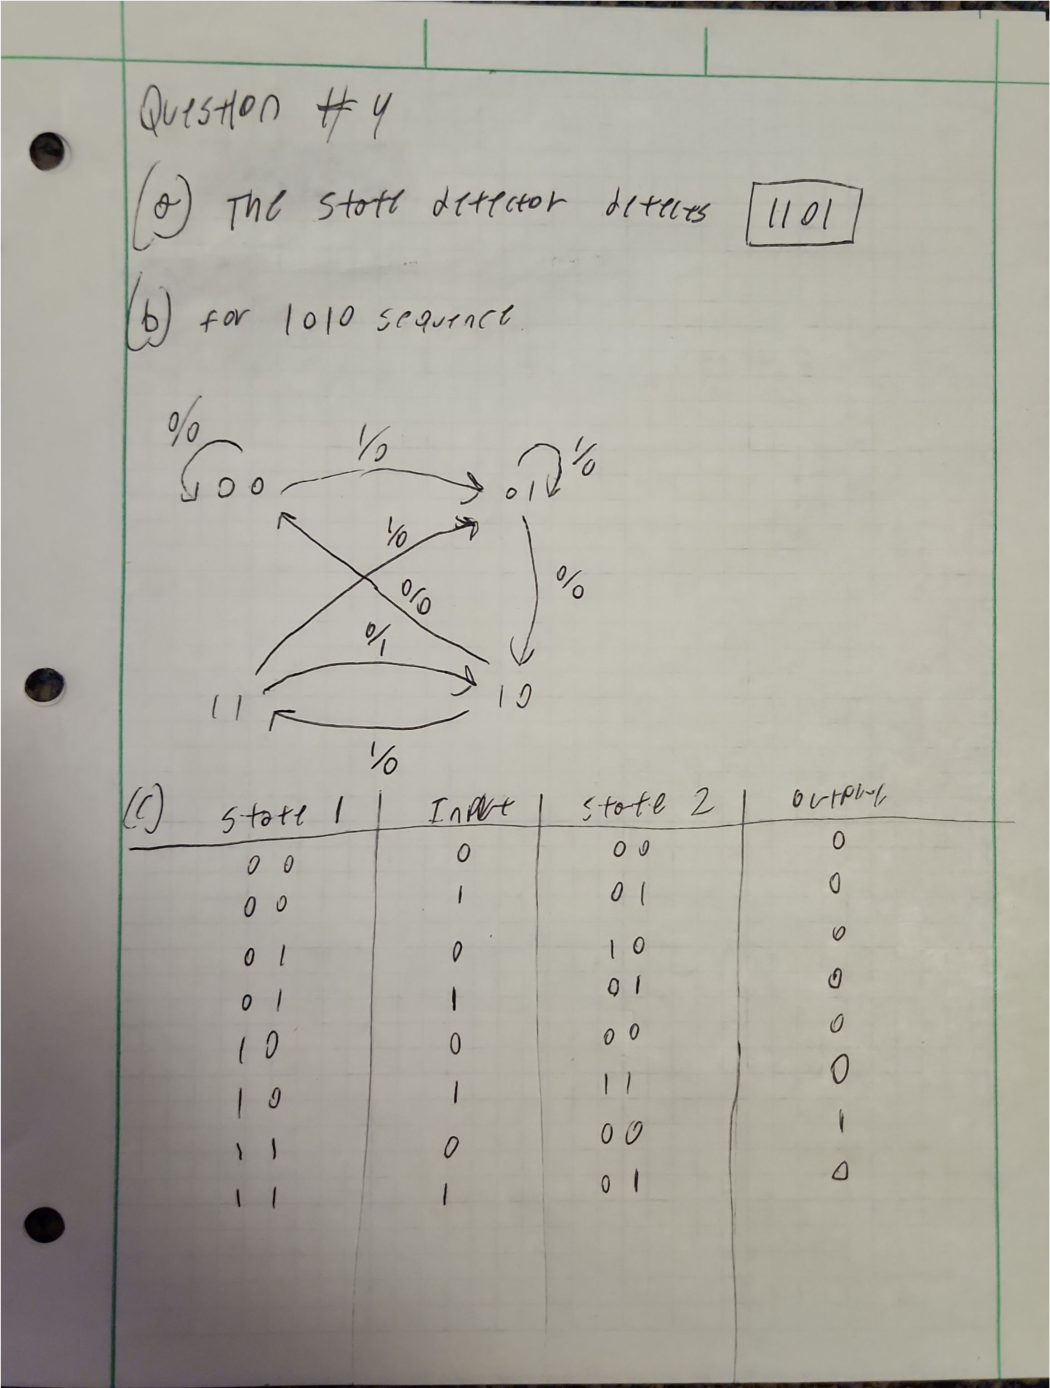 Question #4
(a) The state detector detects 1101
(b) for 1010 sequence
0/0
1/0
1/0
00
01
1/0
0/0
0/0
0/1
11
10
1/0
(c) state 1 Input state 2 output
00 0 00 0
00 1 01 0
01 0 10 0
01 1 01 0
10 0 00 0
10 1 11 0
11 0 00 1
11 1 01 0